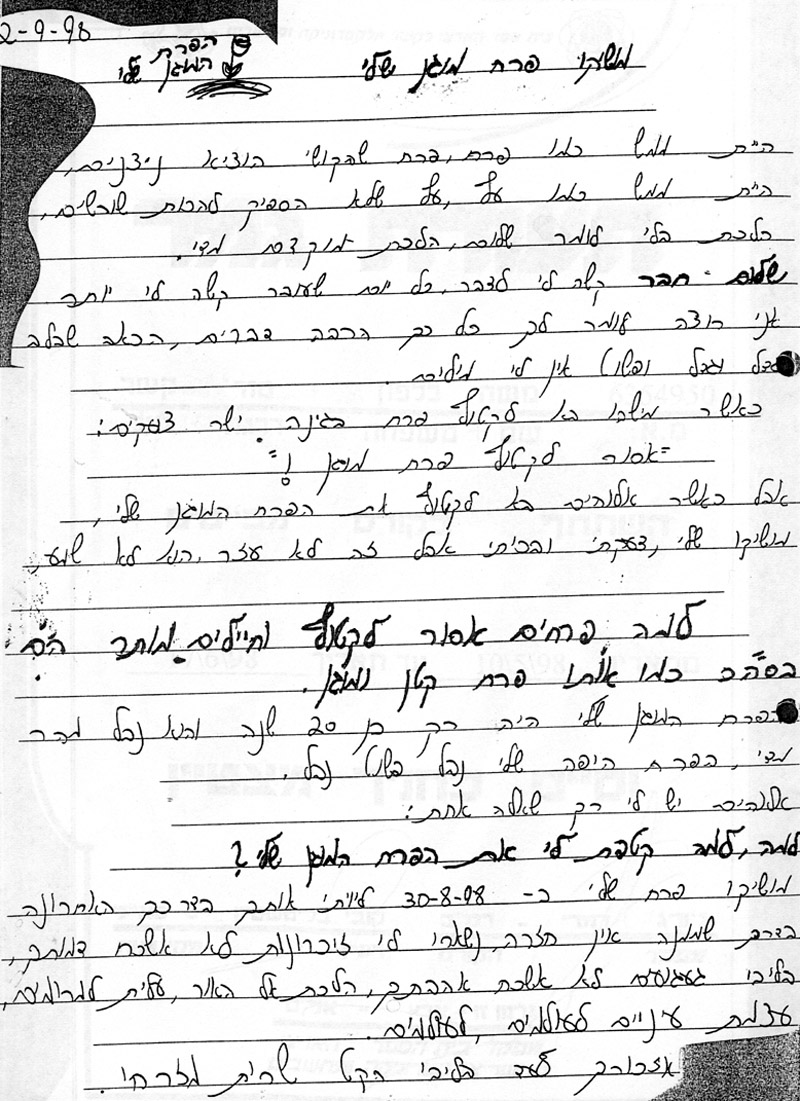 2-9-98
הפרח
המוגן שלי
מושיקו פרח מוגן שלי
היית ממש כמו פרח, פרח שבקושי הוציא ניצנים,
היית ממש כמו עץ, עץ שלא הספיק להכות שורשים,
הלכת בלי לומר שלום, הלכת מוקדם מדי.
שלום - חבר קשה לי לדבר, כל יום שעובר קשה לי יותר
אני רוצה לומר לך כל כך הרבה דברים, הכאב שבלב
גדל וגדל ופשוט אין לי מילים.
כאשר מישהו בא לקטוף פרח בגינה. ישר צועקים:
"אסור לקטוף פרח מוגן!"
אבל כאשר אלוהים בא לקטוף את הפרח המוגן שלי,
מושיקו שלי, צעקתי ובכיתי אבל זה לא עזר, הוא לא שמע,
למה פרחים אסור לקטוף וחיילים מותר
כמו אותו פרח קטן ומוגן.
הפרח המוגן שלי היה רק בן 20 שנה והוא נבל מהר
מדי, הפרח היפה שלי נבל פשוט נבל.
אלוהים יש לי רק שאלה אחת:
למה, למה קטפת לי את הפרח המוגן שלי?
מושיקו פרח שלי ב- 30-8-98 ליוויתי אותך בדרכך האחרונה
בדרך שממנה אין חזרה, נשארו לי זיכרונות לא אשכח דמותך,
בליבי געגועים לא אשכח אהבתך, הלכת אל האור, עלית למרומים,
עצמת עיניים לעולמים, לעולמים.
אזכורך לעד בליבי הקט שרית מזרחי.